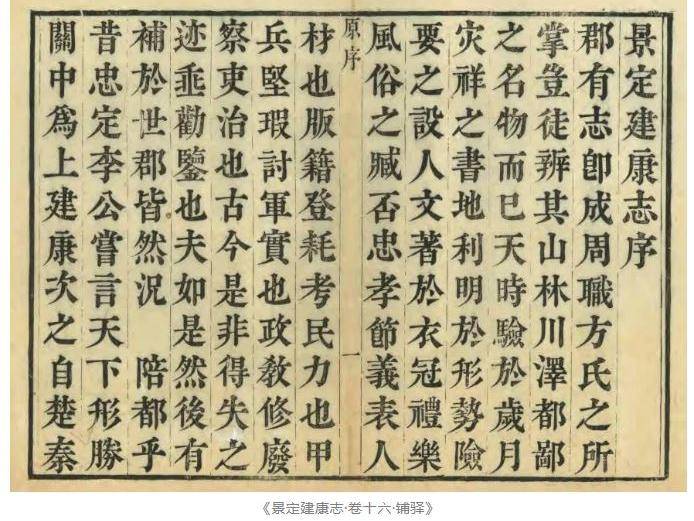 景定建康志序
郡有志卽成周職方氏之所
掌豈徒辨其山林川澤都鄙
之名物而已天時驗於歲月
灾祥之書地利明於形勢險
要之設人文著於衣冠禮樂
風俗之臧否忠孝節義表人
原序
一
材也版籍登耗考民力也甲
兵堅瑕討軍實也政敎修廢
察吏治也古今是非得失之
迹垂勸鑒也夫如是然後有
補於世郡皆然況　陪都乎
昔忠定李公嘗言天下形勝
關中爲上建康次之自楚秦
《景定建康志·卷十六·铺驿》